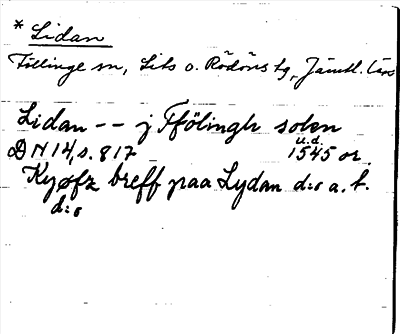 * Lidan
Föllinge sn, Lits o. Rödöns tg, Jämtl. län
Lidan -- j Ffölingh sokn
u.d.
DN 14, s. 817 1545 or.
Kyøfz breff paa Lydan d:s a. t.
d:s